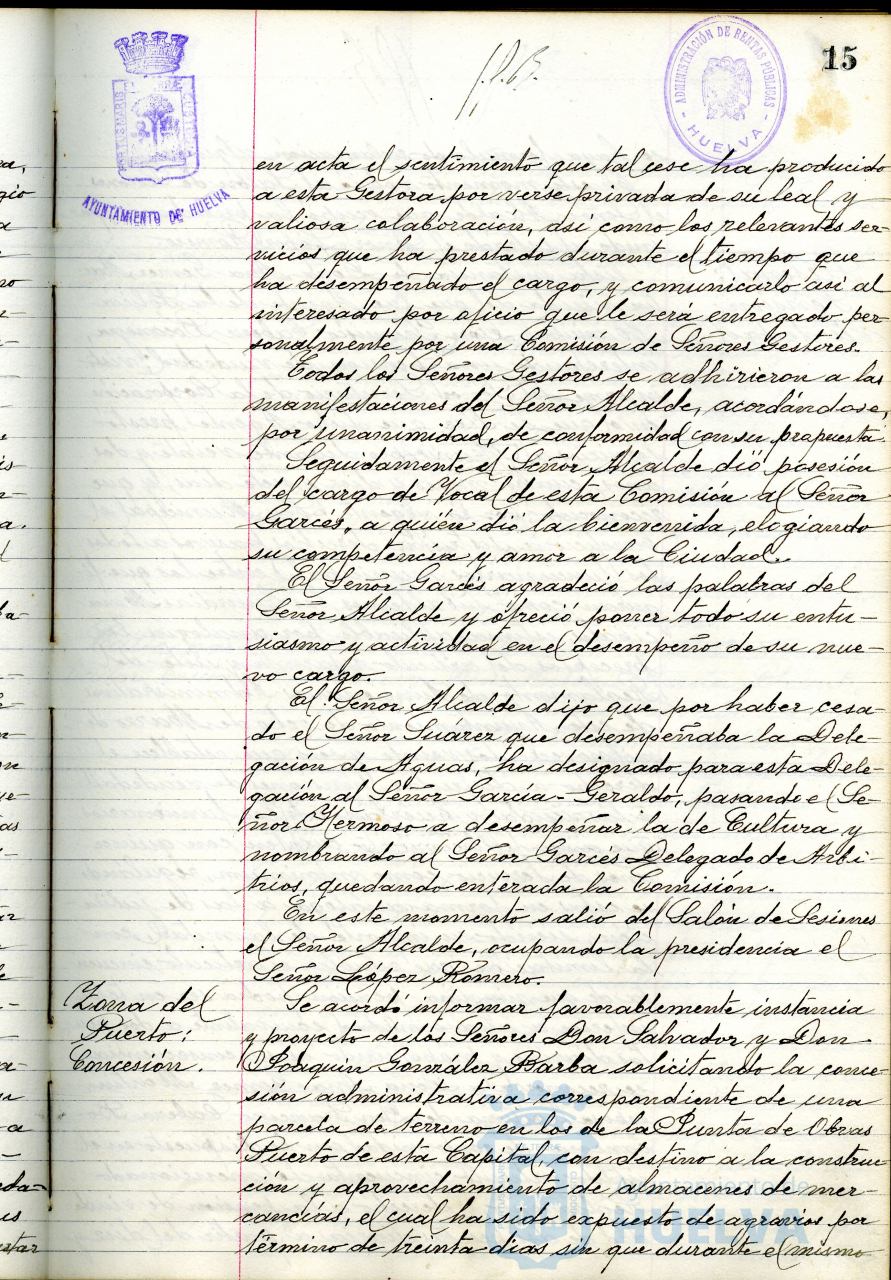 15
ADMINISTRACIÓN DE RENTAS PÚBLICAS
HUELVA
AYUNTAMIENTO DE HUELVA
en acta el sentimiento que tal cese ha producido
a esta Gestora por verse privada de su leal y
valiosa colaboración, asi como los relevantes ser-
vicios que ha prestado durante el tiempo que
ha desempeñado el cargo, y comunicarlo asi al
interesado por oficio que le será entregado per-
sonalmente por una Comisión de Señores Gestores.
Todos los Señores Gestores se adhirieron a las
manifestaciones del Señor Alcalde, acordándose,
por unanimidad, de conformidad con su propuesta.
Seguidamente el Señor Alcalde dió posesión
del cargo de Vocal de esta Comisión al Señor
Garcés, a quién dió la bienvenida, elogiando
su competencia y amor a la Ciudad.
El Señor Garcés agradeció las palabras del
Señor Alcalde y ofreció poner todo su entu-
siasmo y actividad en el desempeño de su nue-
vo cargo.
El Señor Alcalde dijo que por haber cesa-
do el Señor Suárez que desempeñaba la Dele-
gación de Aguas, ha designado para esta Dele-
gación al Señor García-Geraldo, pasando el Se-
ñor Hermoso a desempeñar la de Cultura y
nombrando al Señor Garcés Delegado de Arbi-
trios, quedando enterada la Comisión.
En este momento salió del Salón de Sesiones
el Señor Alcalde, ocupando la presidencia el
Señor López Romero.
Zona del
Puerto:
Concesión.
Se acordó informar favorablemente instancia
y proyecto de los Señores Don Salvador y Don
Joaquin González Barba solicitando la conce-
sión administrativa correspondiente de una
parcela de terreno en los de la Junta de Obras
Puerto de esta Capital, con destino a la construc
ción y aprovechamiento de almacenes de mer-
cancías, el cual ha sido expuesto de agravios por
término de treinta dias sin que durante el mismo
Ayuntamiento de
HUELVA